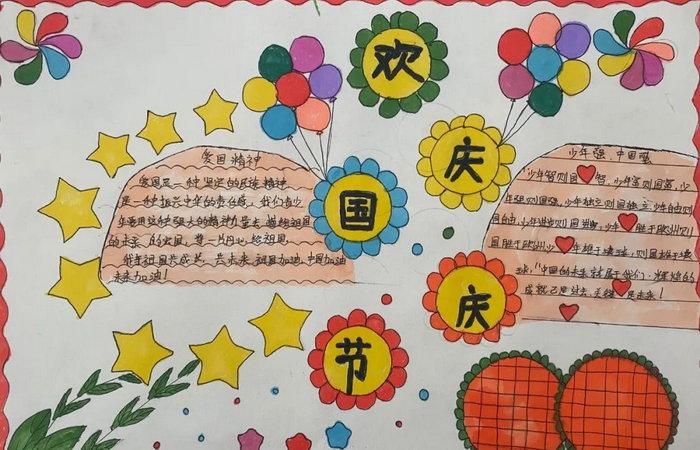 欢
庆
国
庆
节
爱国精神
爱国是一种坚定的民族精神
是一种振兴中华的责任感，我们青少
年要用这种强大的精神力量去
的未来的祖国，尊一片丹心给祖国。
我和祖国共成长，共未来，祖国加油，中国加油
未来加油！
少年强，中国强
"少年智则国智，少年富则国富，少
年强则国强，少年独立则国独立，少年自由则
国自由，少年进步则国进步，少年胜于欧洲则
国胜于欧洲，少年雄于地球，则国雄于地
球。"中国的未来就属于我们，辉煌的
成就已是过去，关键是未来！